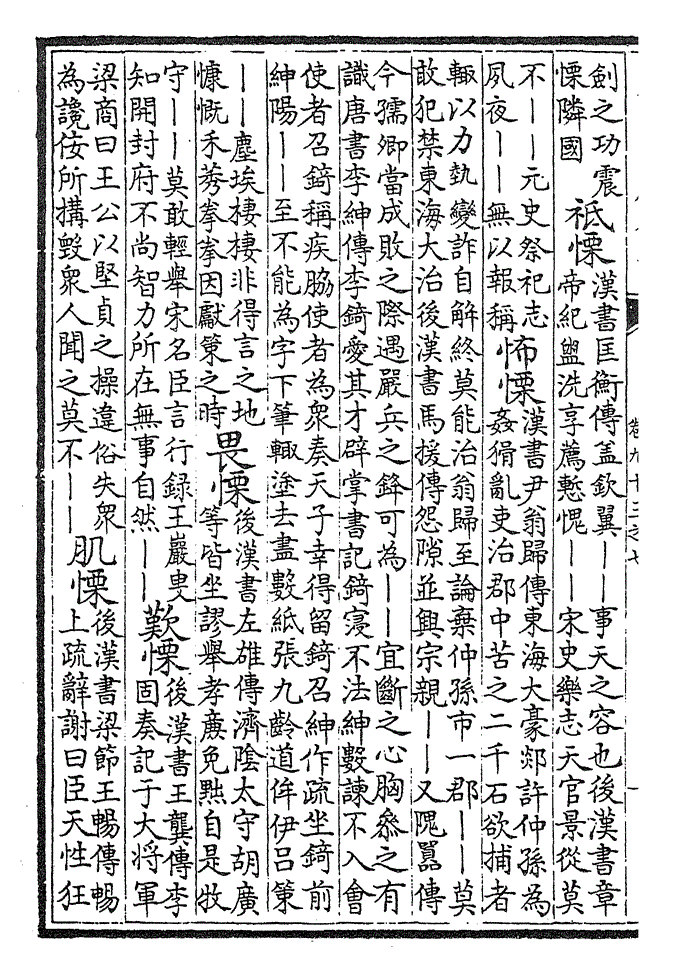 劍之功震
慄隣國
祗慄
漢書匡衡傳蓋欽翼——事天之容也後漢書章
帝紀盥洗享薦慙愧——宋史樂志天官景從莫
不——元史祭祀志
夙夜——無以報稱
怖慄
漢書尹翁歸傳東海大豪郯許仲孫為
姦猾亂吏治郡中苦之二千石欲捕者
輙以力埶變詐自解終莫能治翁歸至論棄仲孫市一郡——莫
敢犯禁東海大治後漢書馬援傳怨隙並興宗親——又隗囂傳
今孺卿當成敗之際遇嚴兵之鋒可為——宜斷之心胸叅之有
識唐書李紳傳李錡愛其才辟掌書記錡寖不法紳數諫不入會
使者召錡稱疾脇使者為衆奏天子幸得留錡召紳作疏坐錡前
紳陽——至不能為字下筆輙塗去盡數紙張九齡道侔伊呂策
——塵埃棲棲非得言之地
慷慨禾莠拳拳因獻策之時
畏慄
後漢書左雄傳濟陰太守胡廣
等皆坐謬舉孝亷免黜自是牧
守——莫敢輕舉宋名臣言行録王巖叟
知開封府不尚智力所在無事自然——
歎慄
後漢書王龔傳李
固奏記于大将軍
梁商曰王公以堅貞之操違俗失衆
為讒佞所搆毀衆人聞之莫不——
肌慄
後漢書梁節王暢傳暢
上疏辭謝曰臣天性狂
卷九十三之七